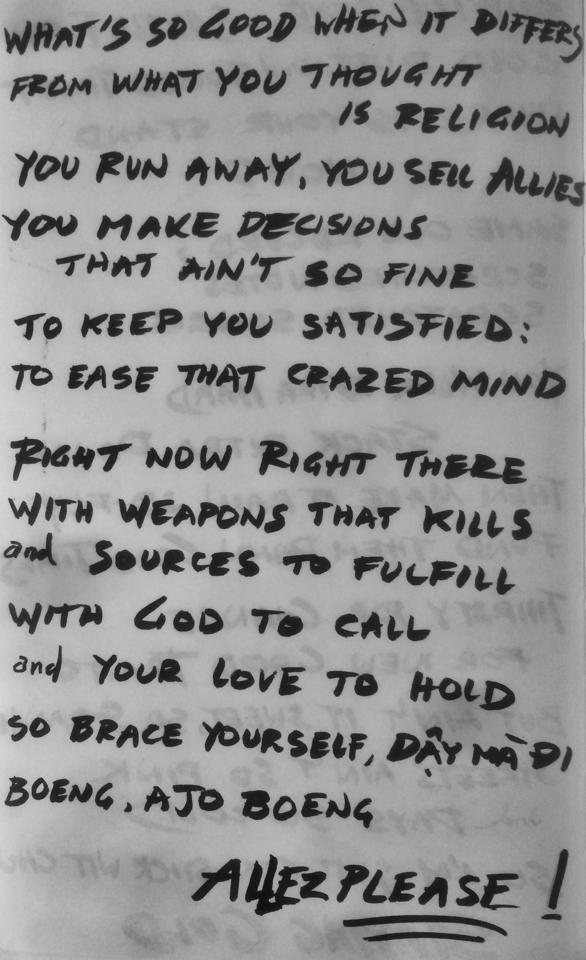 WHAT'S SO GOOD WHEN IT DIFFERS
FROM WHAT YOU THOUGHT
IS RELIGION
YOU RUN AWAY, YOU SELL ALLIES
YOU MAKE DECISIONS
THAT AIN'T SO FINE
TO KEEP YOU SATISFIED:
TO EASE THAT CRAZED MIND
RIGHT NOW RIGHT THERE
WITH WEAPONS THAT KILLS
and SOURCES TO FULFILL
WITH GOD TO CALL
and YOUR LOVE TO HOLD
SO BRACE YOURSELF, DẬY MÀ ĐI
BOENG, AJO BOENG
ALLEZ PLEASE!